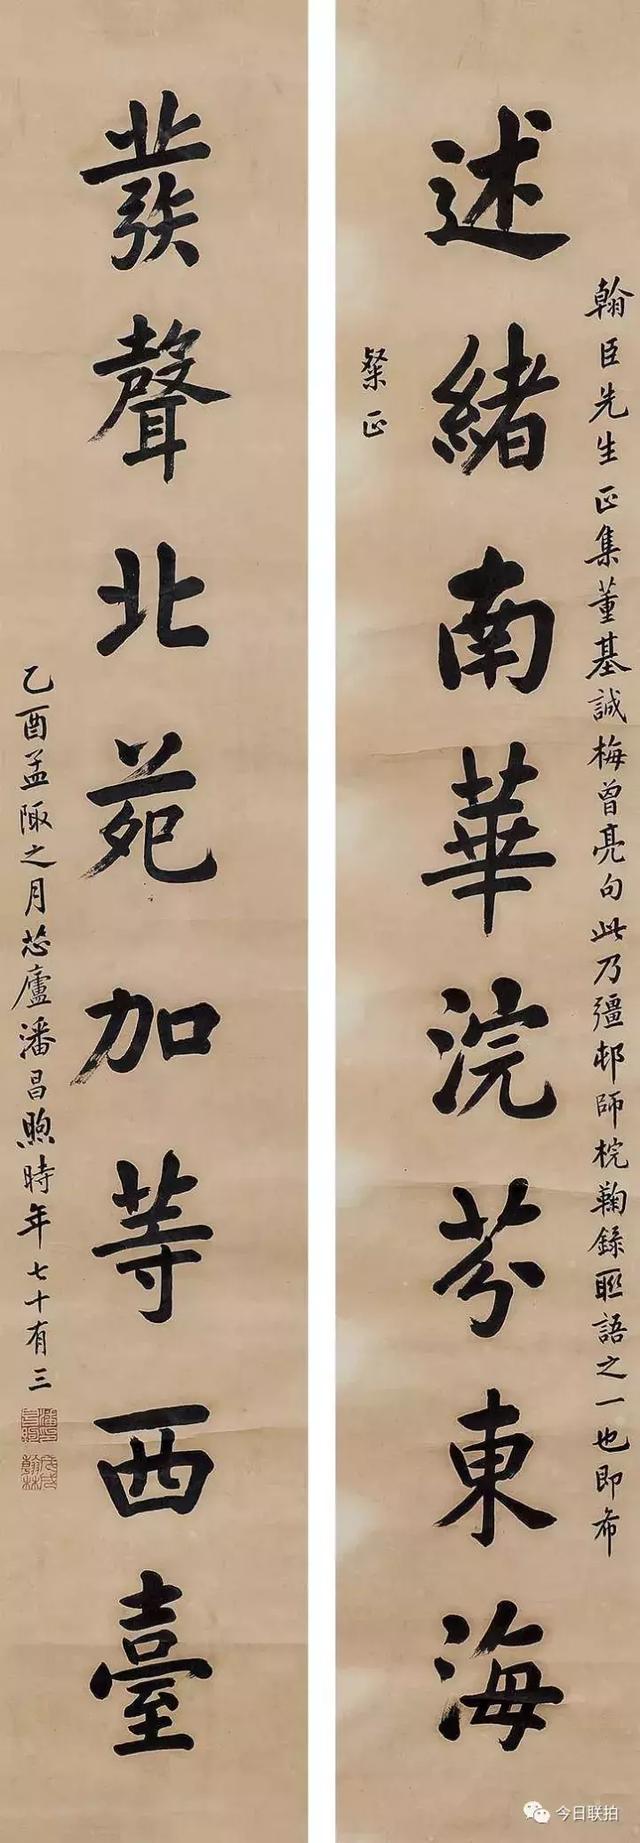 翰臣先生正集董基誠梅曾亮句此乃彊邨師梡鞠錄聯語之一也即希
述緒南華浣芬東海
粲正
發聲北苑加等西臺
乙酉孟陬之月芯廬潘昌煦時年七十有三
潘昌煦
戊戌翰林
今日联拍